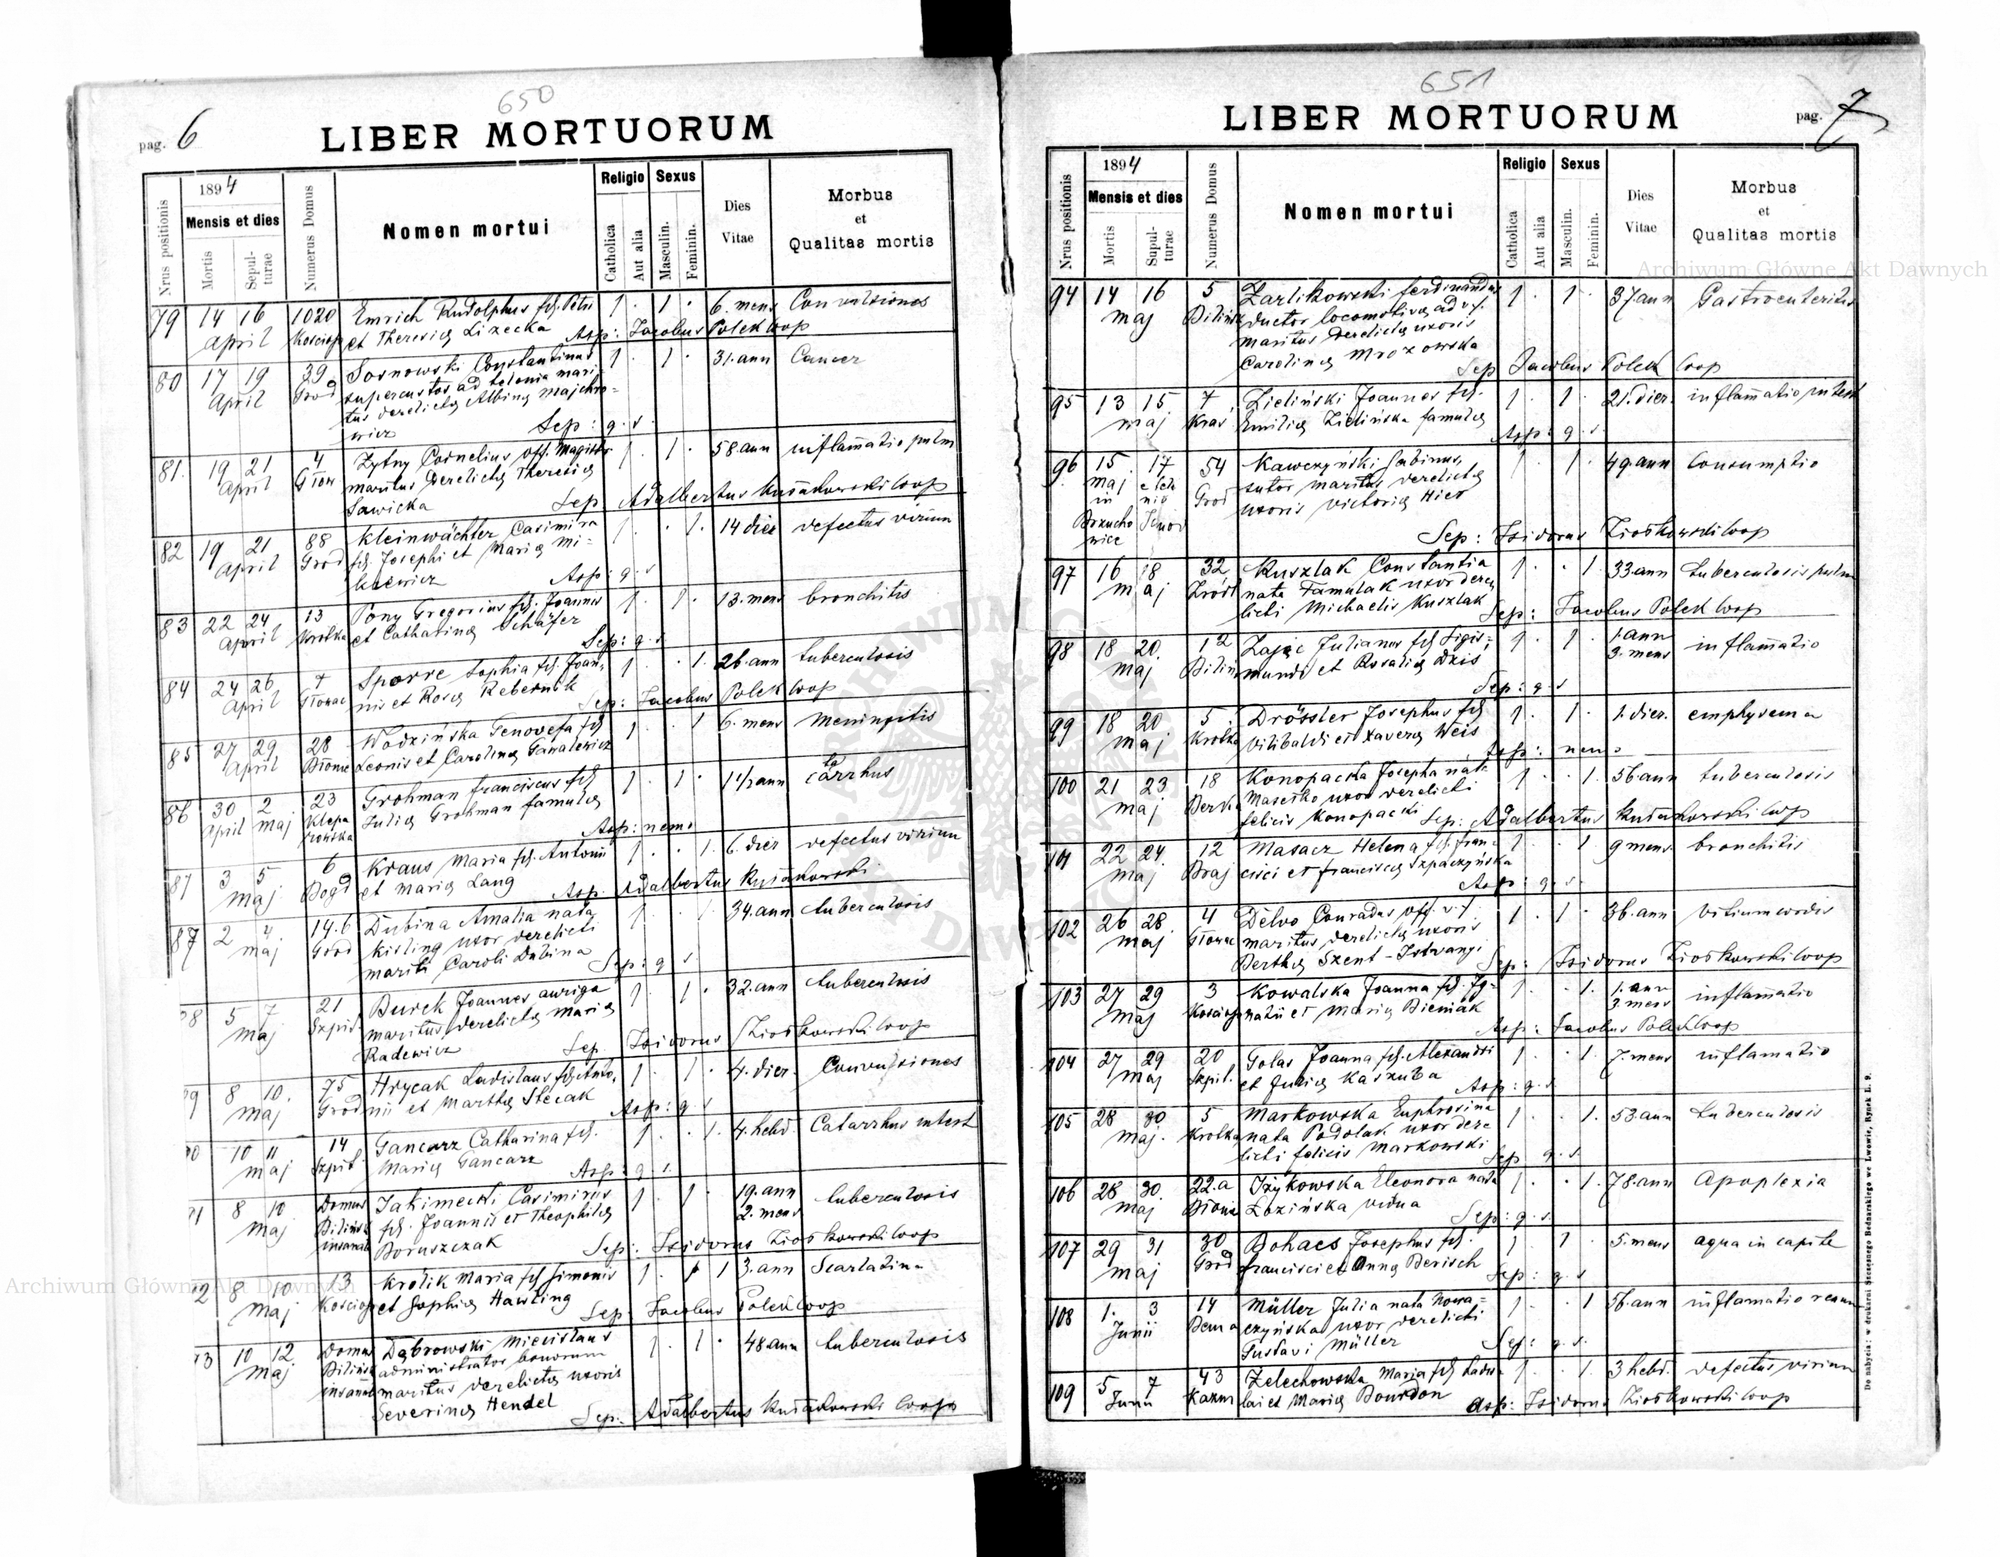 650
pag. 6
LIBER MORTUORUM
Nrus positionis
1894
Mensis et dies
Mortis
Sepulturae
Numerus Domus
Nomen mortui
Religio
Catholica
Aut alia
Sexus
Masculin.
Feminin.
Dies
Vitae
Morbus
et
Qualitas mortis
79 14 16 1020 Emrich Rudolphus fil. Petri 1 · 1 · 6. mens Convulsiones
April et Theresiae Lizecka Asp: Jacobus Polek coop
80 17 19 39 Sosnowski Constantinus 1 · 1 · 31. ann Cancer
April Grod supercustos ad telonia mari-
tus derelictae Albinae Majchro-
wicz Sep: q. s.
81. 19 21 4 Zytny Cornelius off. Magistr 1 · 1 · 58. ann inflammatio pulm
April Głow maritus derelictae Theresiae
Sawicka Sep Adalbertus Kusiakowski coop
82 19 21 88 Kleinwächter Casimira 1 · · 1. 14 dier defectus virium
April Grod fil. Josephi et Mariae Mi-
Asp: q. s
83 22 24 13 Pony Gregorius fil. Joannis 1 · 1 · 13. mens bronchitis
April Krotka et Catharinae Schäfer
Sep: q. s
84 24 26 7 Sporre Sophia fil. Joan- 1 · · 1. 26. ann tuberculosis
April Głowac nis et Rosae Rebernik Sep: Jacobus Polek coop
85 27 29 28 Wodzińska Genovefa fil 1 · · 1 6. mens meningitis
April Błonie Leonis et Carolinae Gamalewicz
86 30 2 23 Grohman Franciscus fil 1 · 1 · 1 1/2 ann catarrhus
April maj Klepa Juliae Grohman famulae
rowska Asp: nemo
87 3 5 6 Kraus Maria fil. Antonii 1 · · 1. 6. dier defectus virium
maj Bogd et Mariae Lang Asp. Adalbertus Kusiakowski
87 2 4 14. b Dubina Amalia nata 1 · · 1. 34. ann tuberculosis
maj Grod Kisling uxor derelicti
mariti Caroli Dubina Sep: q s
88 5 7 21 Burek Joannes auriga 1 · 1 · 32. ann tuberculosis
maj Szpit. maritus derelictae Mariae
Radewicz Sep. Isidorus Ziołkowski coop
89 8 10. 75 Hrycak Ladislaus fil. Anto- 1 · 1 · 4. dier. Convulsiones
maj Grod nii et Marthae Stecak Asp: q. s
90 10 11 14 Gancarz Catharina fil. 1 · · 1. 4. hebd. Catarrhus intest
maj Szpit. Mariae Gancarz Asp: q. s.
91 8 10 Domus Jakimecki Casimirus 1 · 1 · 19. ann tuberculosis
maj Bilińsk fil. Joannis et Theophilae 2. mens
insanab Boruszczak Sep: Isidorus Ziołkowski coop
92 8 10 13 Krolik Maria fil Simonis 1 · 1 3. ann Scarlatina
maj Kosciop et Sophiae Hawling Sep: Jacobus Polek coop
93 10 12 Domus Dąbrowski Miecislaus 1 · 1 · 48. ann tuberculosis
maj Bilińsk administrator bonorum
insanab maritus derelictae uxoris
Severinae Hendel Sep: Adalbertus Kusiakowski coop
651
LIBER MORTUORUM
pag. 7
Nrus positionis
1894
Mensis et dies
Mortis
Sepulturae
Numerus Domus
Nomen mortui
Religio
Catholica
Aut alia
Sexus
Masculin.
Feminin.
Dies
Vitae
Morbus
et
Qualitas mortis
94 14 16 5 Zarlikowski Ferdinandus 1 · 1 · 37. ann Gastroenteritis
maj Bilińsk ductor locomotivae ad v. f.
maritus derelictae uxoris
Carolinae Mrozowska
Sep Jacobus Polek coop
95 13 15 7 Zieliński Joannes fil. 1 · 1 · 21. dier. inflammatio intest
maj Kras. Emiliae Zielińska famulae
Asp: q. s
96 15 17 54 Kawczyński Sabinus 1 · 1 · 49. ann Consumptio
maj Grod sutor maritus derelictae
in uxoris Victoriae Hier
Brzucho
wice Sep: Isidorus Ziołkowski coop
97 16 18 32 Kuszlak Constantia 1 · · 1. 33. ann tuberculosis pulm
maj Zródl nata Famulak uxor dere
licti Michaelis Kuszlak Sep: Jacobus Polek coop
98 18 20. 12 Zając Julianus fil Sigis- 1 · 1 · 1. ann inflammatio
maj Biliń mundi et Rosaliae Dzis 3. mens
Sep: q. s
99 18 20 5 Drössler Josephus fil 1 · 1 · 1. dier. emphysema
maj Krotka Vilibaldi et Xaverae Weis
Asp: nemo
100 21 23 18 Konopacka Josepha nata 1 · · 1. 56. ann tuberculosis
maj Berka Maseśko uxor derelicti
felicis Konopacki Sep: Adalbertus Kusiakowski coop
101 22 24. 12 Masacz Helena fil. Fran- 1 · · 1 9 mens bronchitis
maj Braj cisci et Franciscae Szpaczyńska
Asp: q. s.
102 26 28 4 Delvo Conradus off. v. f. 1 · 1 · 36. ann vitium cordis
maj Głowac maritus derelictae uxoris
Berthae Szent-Istvanyi Sep: Isidorus Ziołkowski coop
103 27 29 3 Kowalska Joanna fil. Ig- 1 · · 1. 1. ann inflammatio
maj Kosciop natii et Mariae Bieniak 3. mens
Asp: Jacobus Polek coop
104 27 29 20 Golas Joanna fil. Alexandri 1 · · 1. 7. mens inflamatio
maj Szpit. et Juliae Kaszuba Asp: q. s
105 28 30 5 Markowska Euphrosina 1 · · 1. 53. ann tuberculosis
maj. Krotka nata Podolak uxor dere
licti felicis Markowski Sep q. s
106 28 30. 22. a Iżykowska Eleonora nata 1 · · 1. 78. ann Apoplexia
maj Błonie Łozińska vidua Sep: q. s.
107 29 31 30 Bohacs Josephus fil. 1 1 · 5. mens aqua in capite
maj Grod Francisci et Annae Berisch Sep: q. s
108 1. 3 14 Müller Julia nata Nowa- 1 · · 1 56. ann inflamatio renum
Junii Bema czyńska uxor derelicti
Gustavi Müller Sep: q. s.
109 5 7 43 Zelechowska Maria fil Ladis- 1 · · 1. 3 hebd. defectus virium
Junii Kazm lai et Mariae Bourdon Asp: Isidorus Ziołkowski coop
De nabycia: w drukarni Szczęsnego Bednarskiego we Lwowie, Rynek L. 9.
Archiwum Główne Akt Dawnych
Archiwum Główne Akt Dawnych